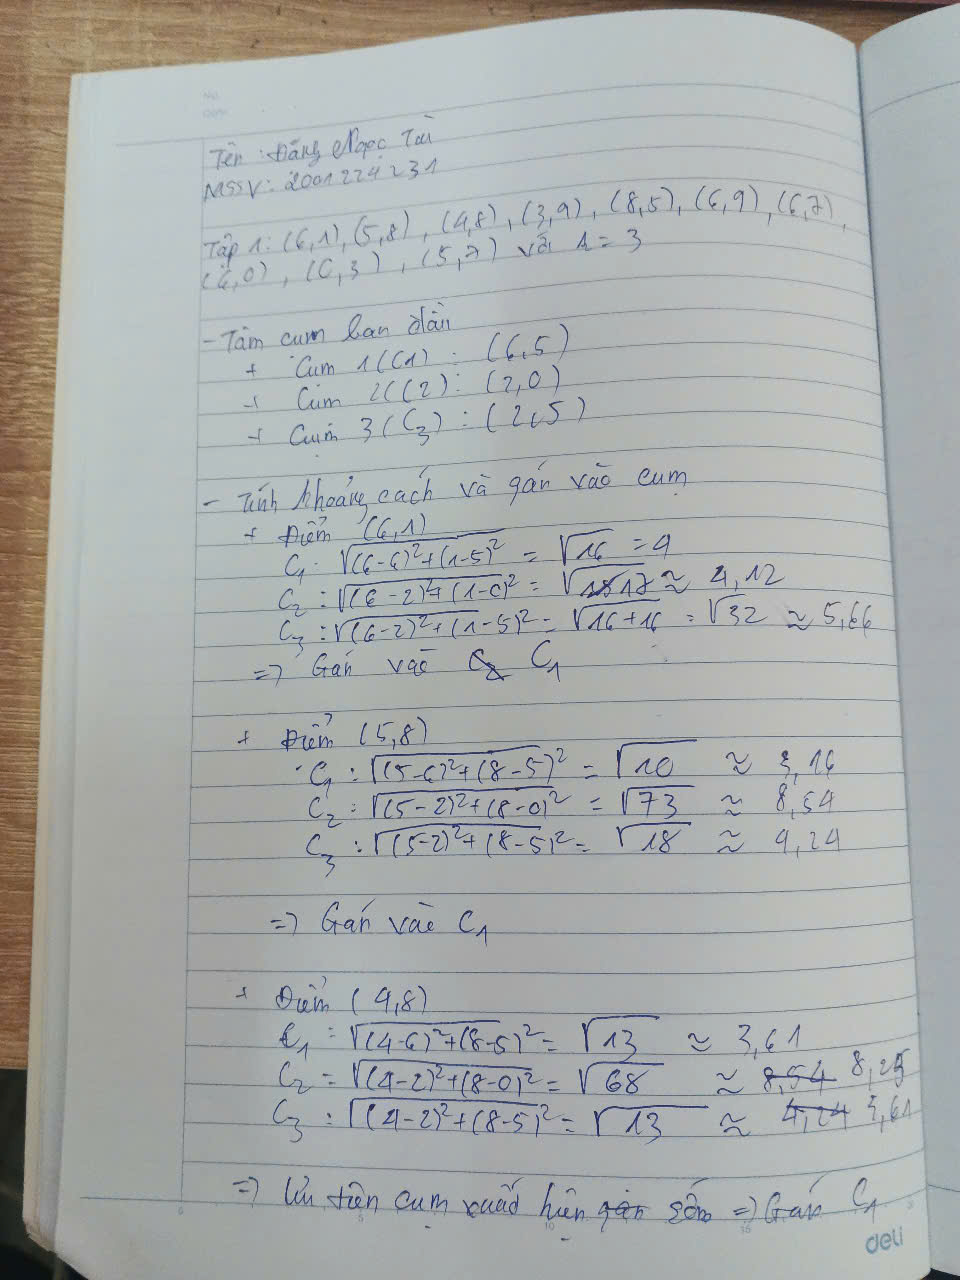 No.
Date
Tên : Đặng Ngọc Tài
MSSV: 2001224231
Tập 1: (6,1), (5,8), (4,8), (3,9), (8,5), (6,9), (6,7),
(6,0), (6,3), (5,7) với k = 3
- Tâm cụm ban đầu
+ Cụm 1 (C1) : (6,5)
+ Cụm 2 (C2) : (2,0)
+ Cụm 3 (C3) : (2,5)
- Tính khoảng cách và gán vào cụm
+ Điểm (6,1)
C1 : √(6-6)²+(1-5)² = √16 = 4
C2 : √(6-2)²+(1-0)² = √17 ≈ 4,12
C3 : √(6-2)²+(1-5)² = √16+16 = √32 ≈ 5,66
=> Gán vào C1
+ Điểm (5,8)
C1 : √(5-6)²+(8-5)² = √10 ≈ 3,16
C2 : √(5-2)²+(8-0)² = √73 ≈ 8,54
C3 : √(5-2)²+(8-5)² = √18 ≈ 4,24
=> Gán vào C1
+ Điểm (4,8)
C1 : √(4-6)²+(8-5)² = √13 ≈ 3,61
C2 = √(4-2)²+(8-0)² = √68 ≈ 8,54 8,25
C3 : √(4-2)²+(8-5)² = √13 ≈ 4,24 3,61
=> Ưu tiên cụm xuất hiện sớm => Gán C1
deli